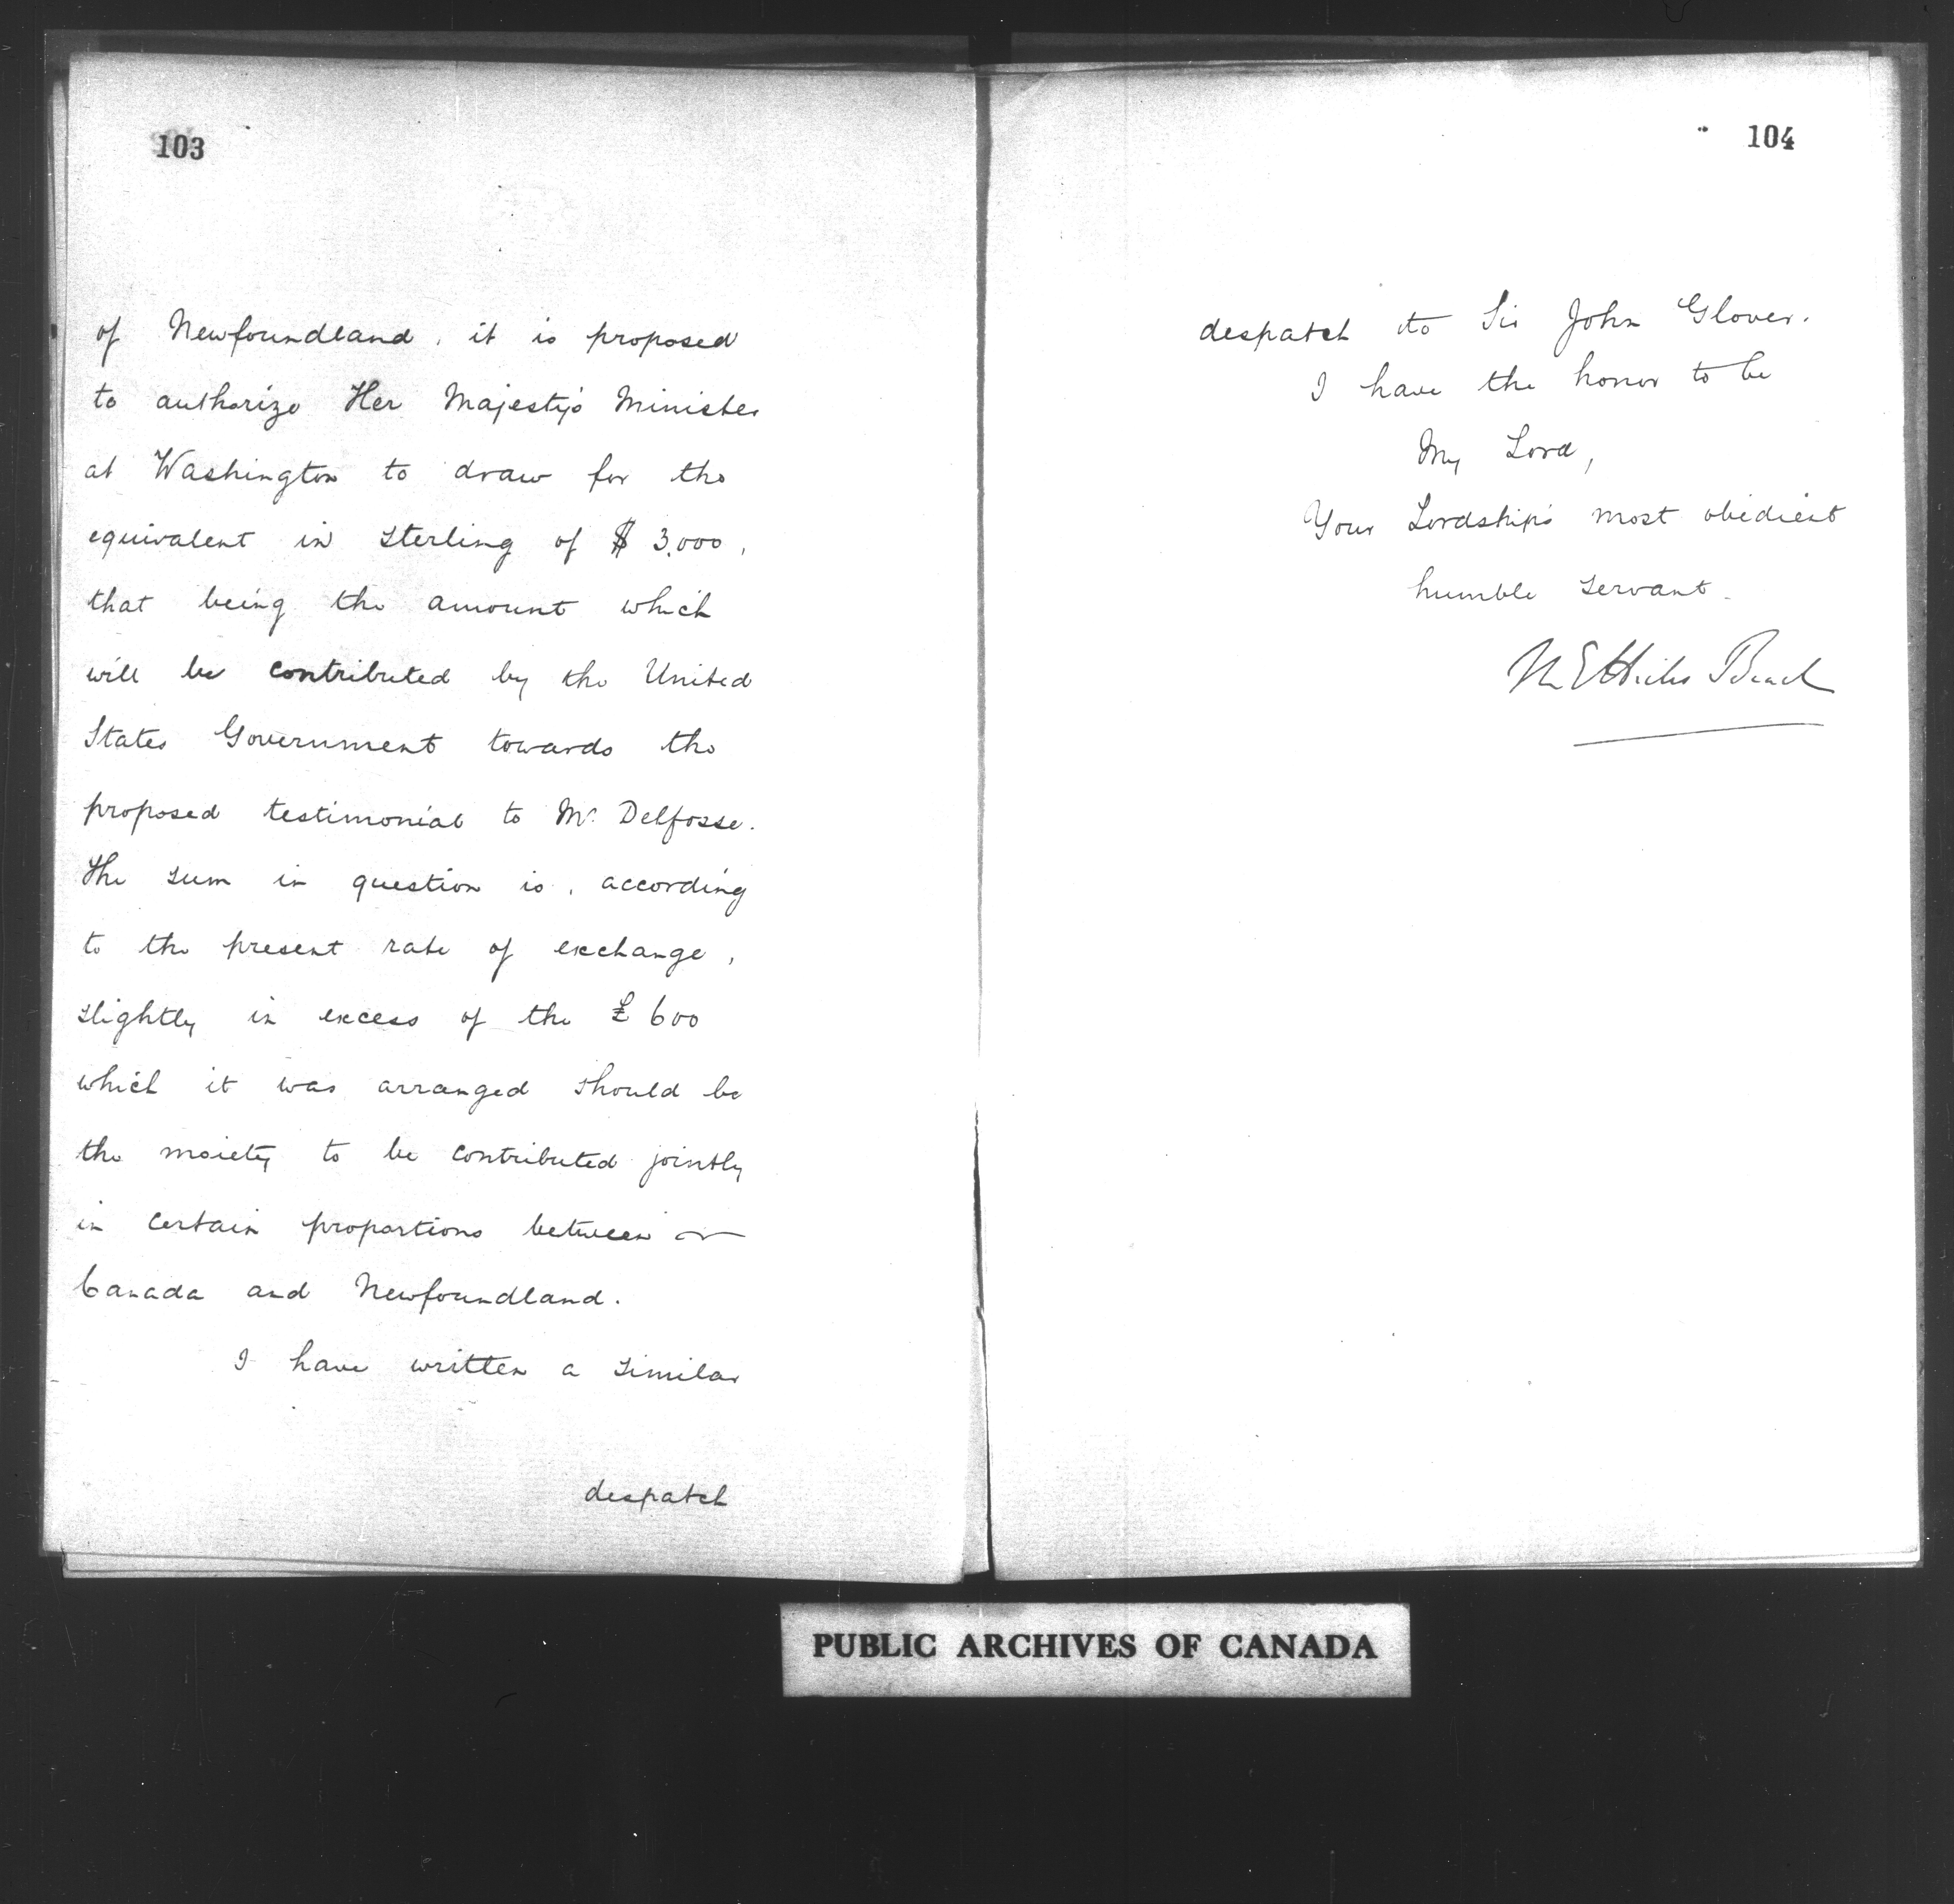 103
of Newfoundland, it is proposed
to authorize Her Majesty's Minister
at Washington to draw for the
equivalent in sterling of $ 3,000,
that being the amount which
will be contributed by the United
States Government towards the
proposed testimonial to Mr. Delfosse.
The sum in question is, according
to the present rate of exchange,
slightly in excess of the £ 600
which it was arranged should be
the moiety to be contributed jointly
in certain proportions between
Canada and Newfoundland.
I have written a similar
despatch
104
despatch to Sir John Glover.
I have the honor to be
My Lord,
Your Lordship's most obedient
humble servant.
M E Hicks Beach
PUBLIC ARCHIVES OF CANADA